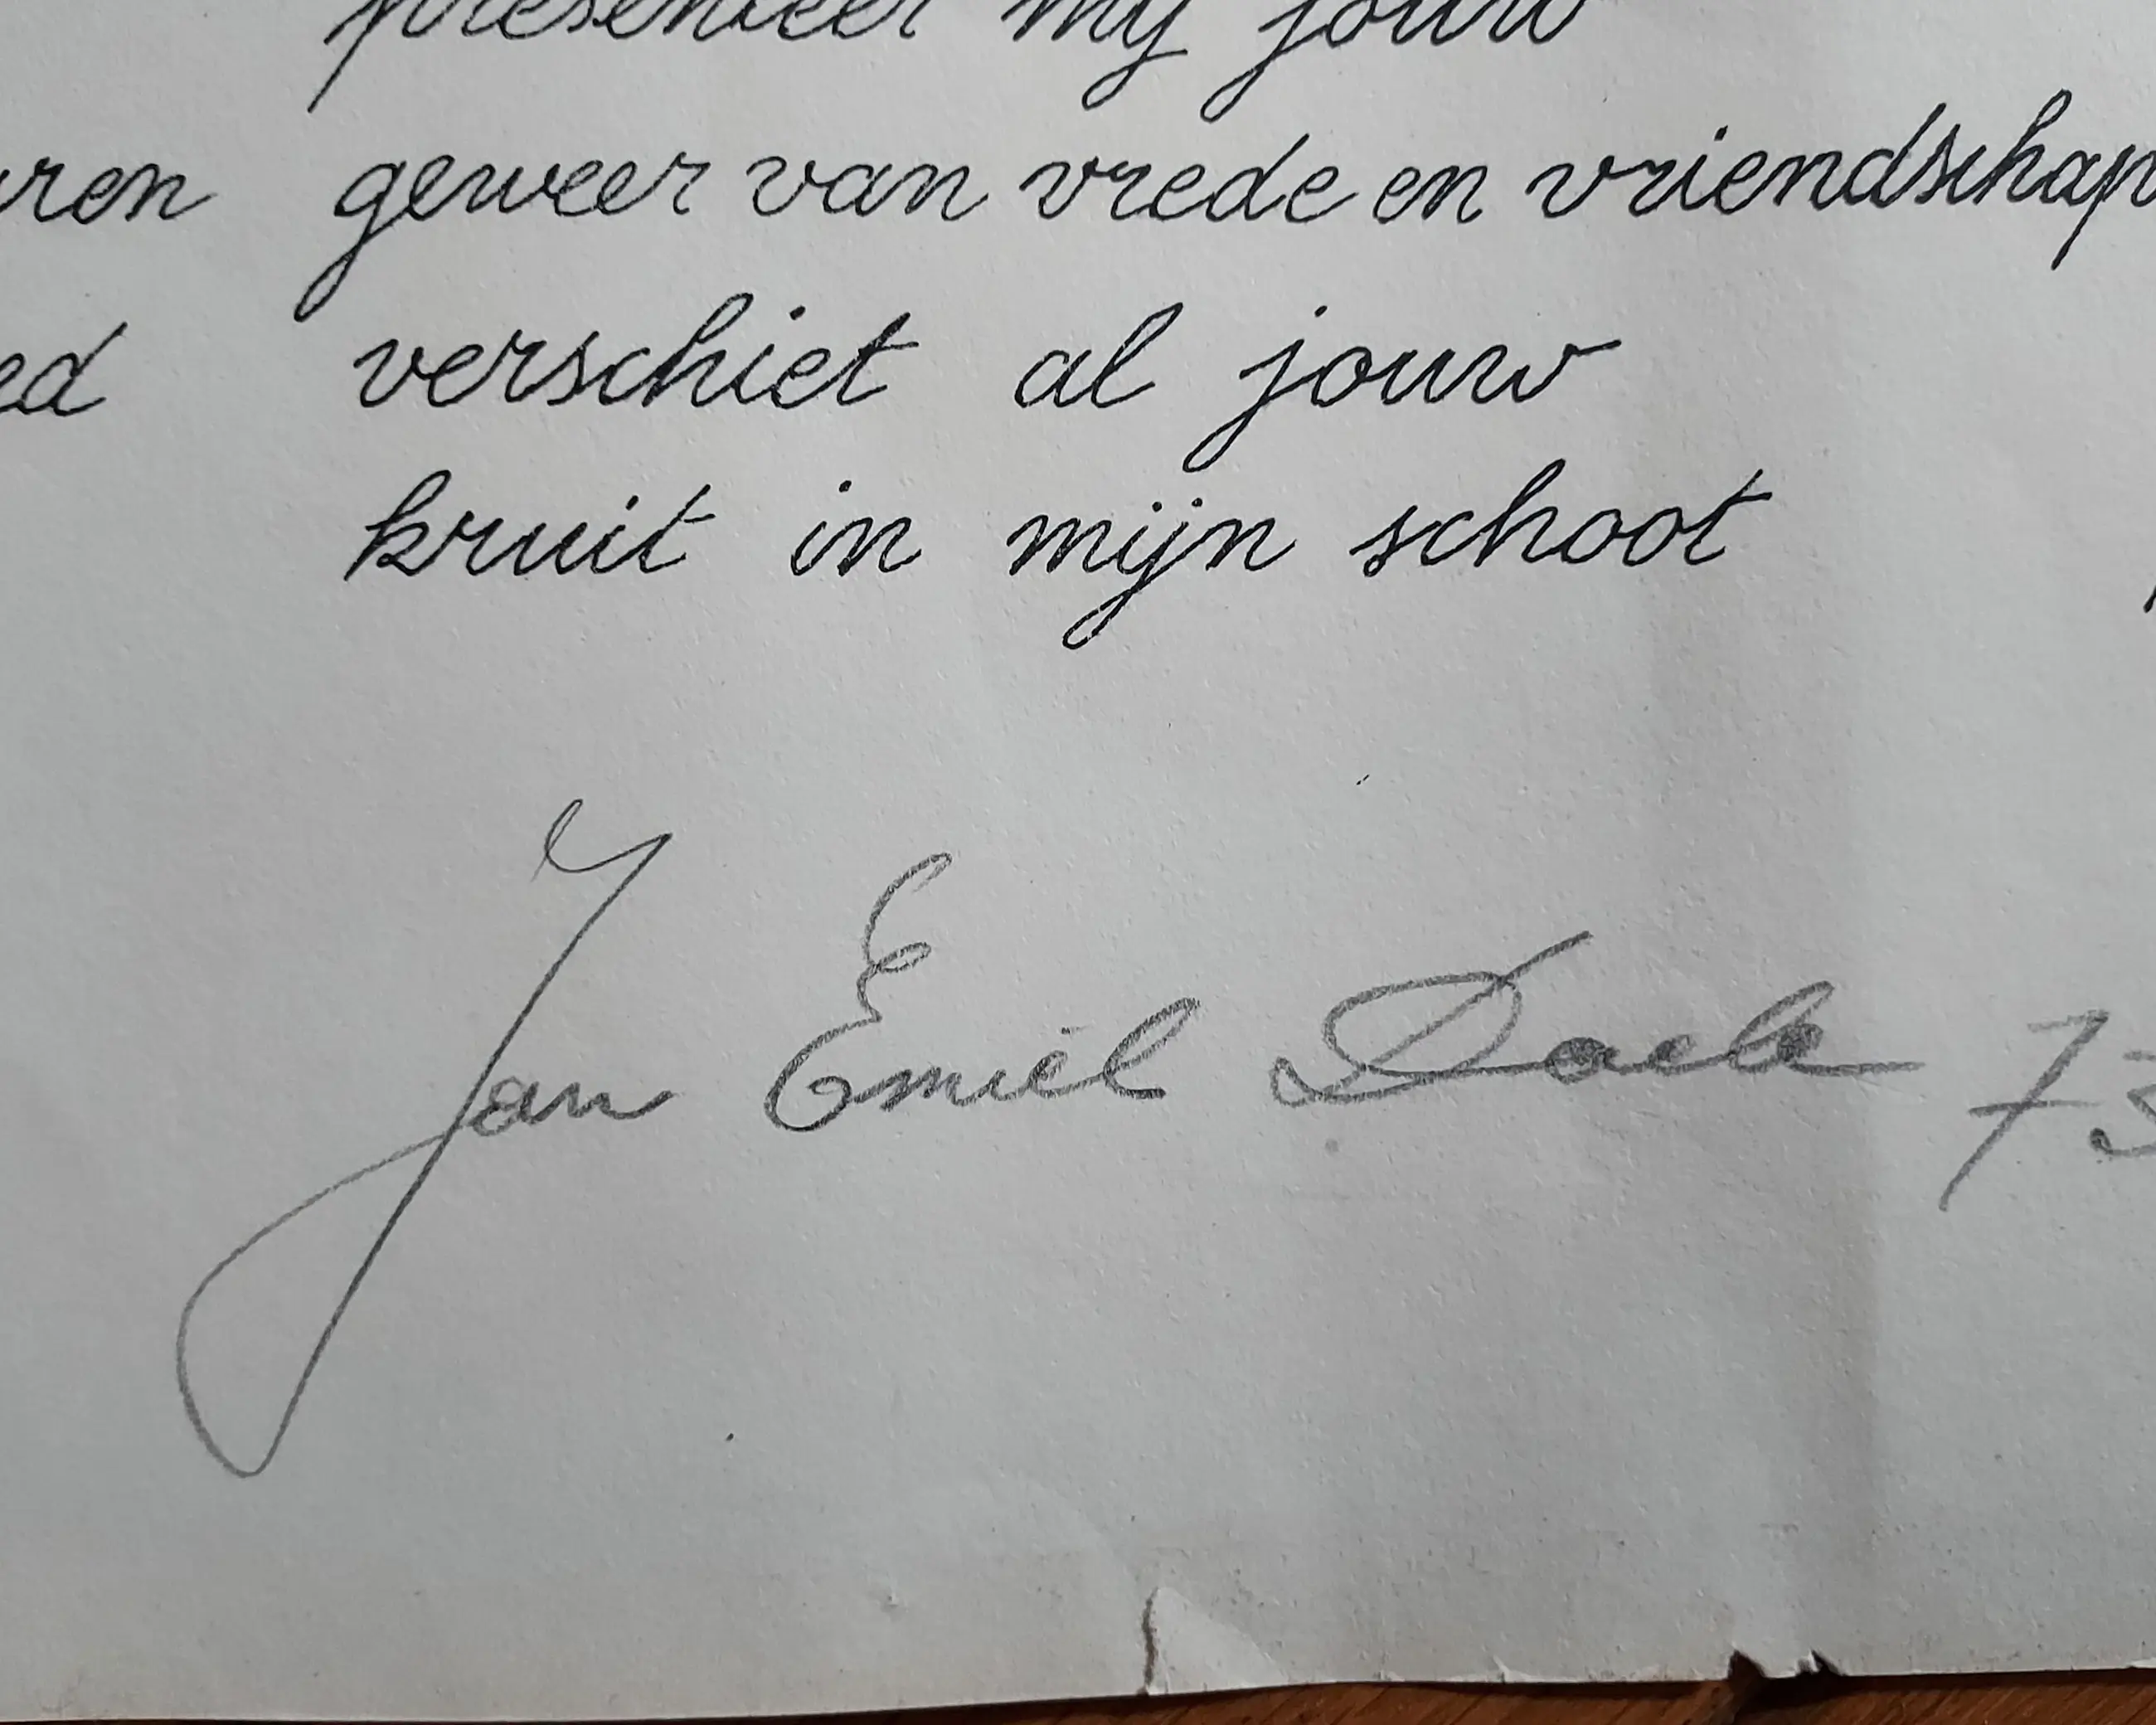 presenteer mij jouw
geweer van vrede en vriendschap
verschiet al jouw
kruit in mijn schoot
Jan Emiel Daele 73